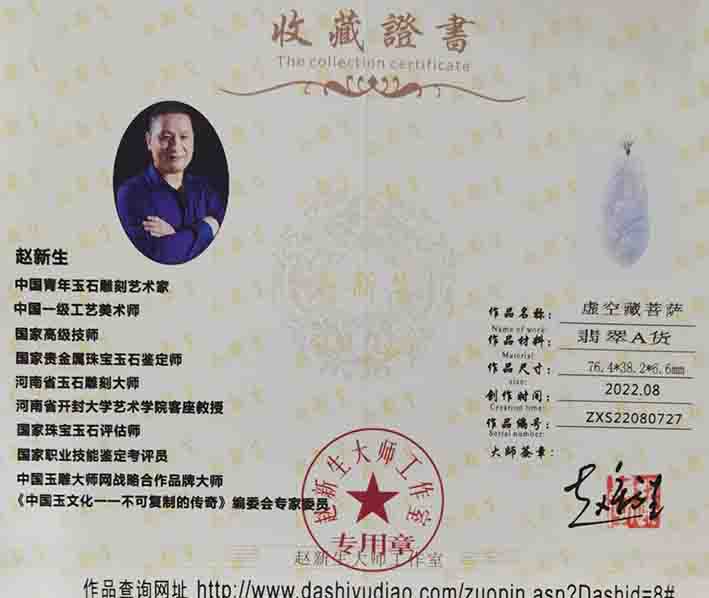 收藏證書
The collection certificate
赵新生
中国青年玉石雕刻艺术家
中国一级工艺美术师
国家高级技师
国家贵金属珠宝玉石鉴定师
河南省玉石雕刻大师
河南省开封大学艺术学院客座教授
国家珠宝玉石评估师
国家职业技能鉴定考评员
中国玉雕大师网战略合作品牌大师
《中国玉文化一一不可复制的传奇》编委会专家委员
作品名称: 虚空藏菩萨
Name of work:
作品材料: 翡翠A货
Material:
作品尺寸: 76.4*38.2*6.6mm
size:
创作时间: 2022.08
Creation time:
作品编号: ZXS22080727
Serial number:
大师签章:
赵新生大师工作室
专用章
赵新生大师工作室
作品查询网址 http://www.dashiyudiao.com/zuopin.asp?Dashid=8#